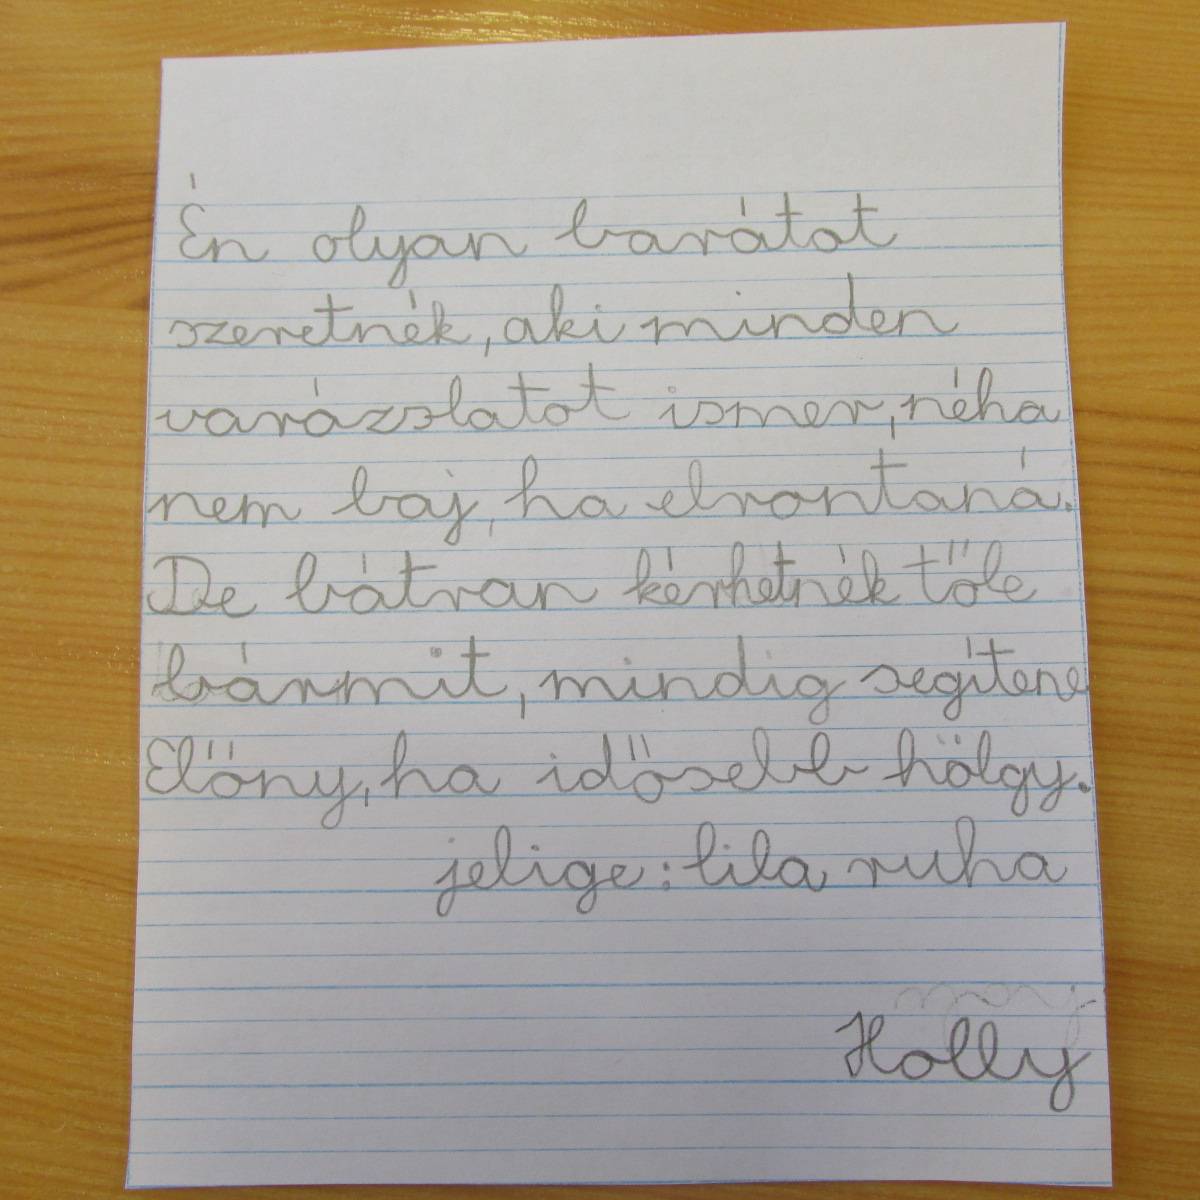 Én olyan barátot
szeretnék, aki minden
varázslatot ismer, néha
nem baj, ha elrontaná.
De bátran kérhetnék tőle
bármit, mindig segítene
Előny, ha idősebb hölgy.
jelige: lila ruha
Holly